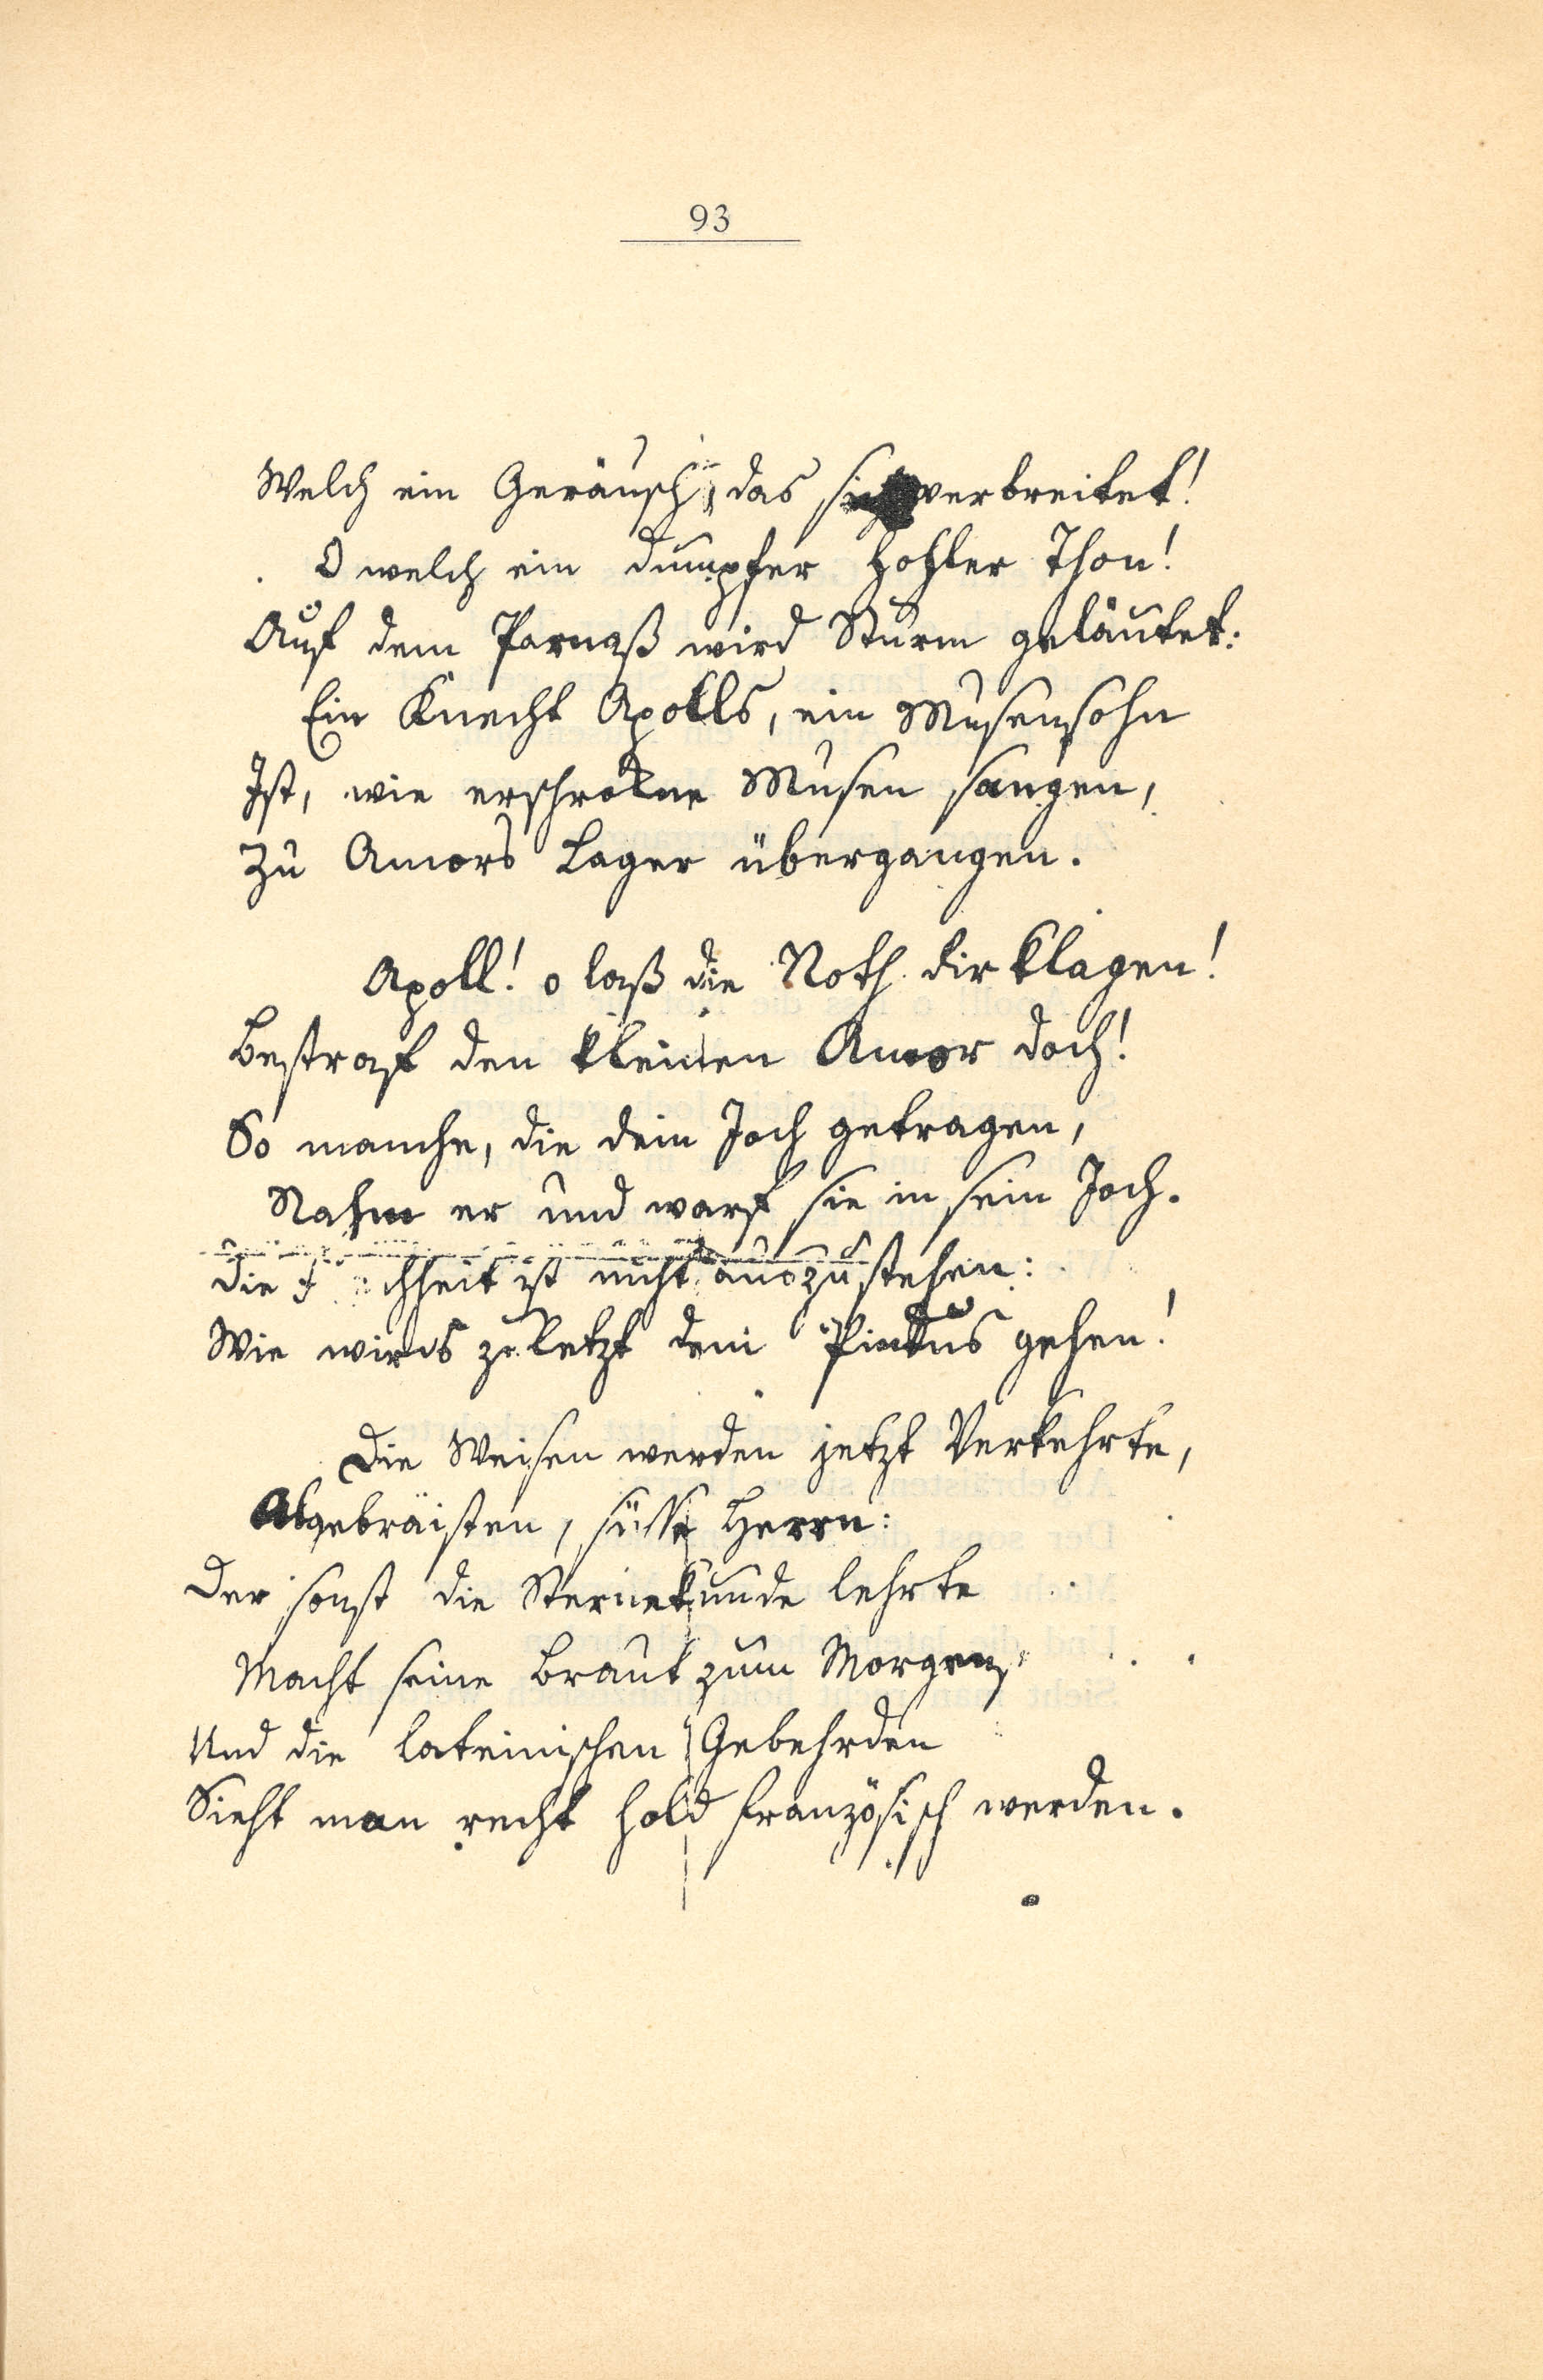 93
Welch ein Geräusch, das sich verbreitet!
O welch ein dumpfer hohler Thon!
Auf dem Parnaß wird Sturm geläutet:
Ein Knecht Apolls, ein Musensohn
Ist, wie erschrokne Musen sangen,
Zu Amors Lager übergangen.
Apoll! o laß die Noth dir klagen!
Bestraf den kleinen Amor doch!
So manche, die dein Joch getragen,
Nahm er und warf sie in sein Joch.
Die ist nicht auszustehen:
Wie wirds zuletzt dem Pindus gehen!
Die Weisen werden jetzt Verkehrte,
Algebräisten, süsse Herrn:
Der sonst die Sternekunde lehrte
Macht seine Braut zum
Und die lateinischen Gebehrden
Sieht man recht hold französisch werden.